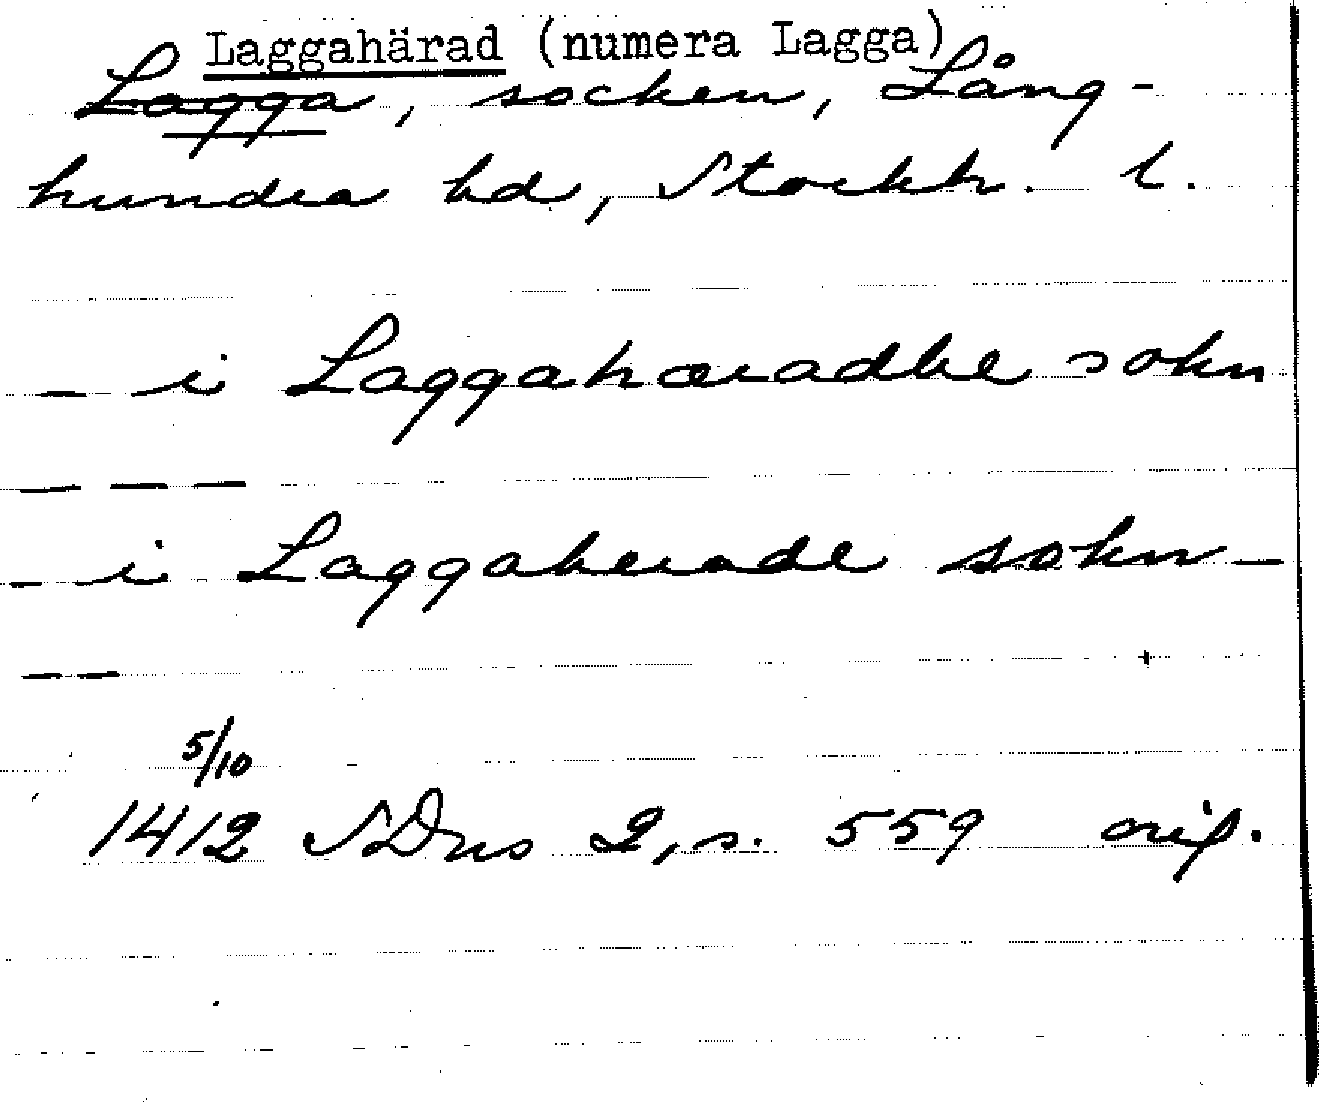 Laggahärad (numera Lagga)
Lagga, socken, Lång-
hundra hd, Stockh. l.
- i Laggahæradhe sokn
- - -
- i Laggaherade sokn -
- -
5/10
1412 SDns 2, s. 559 orig.